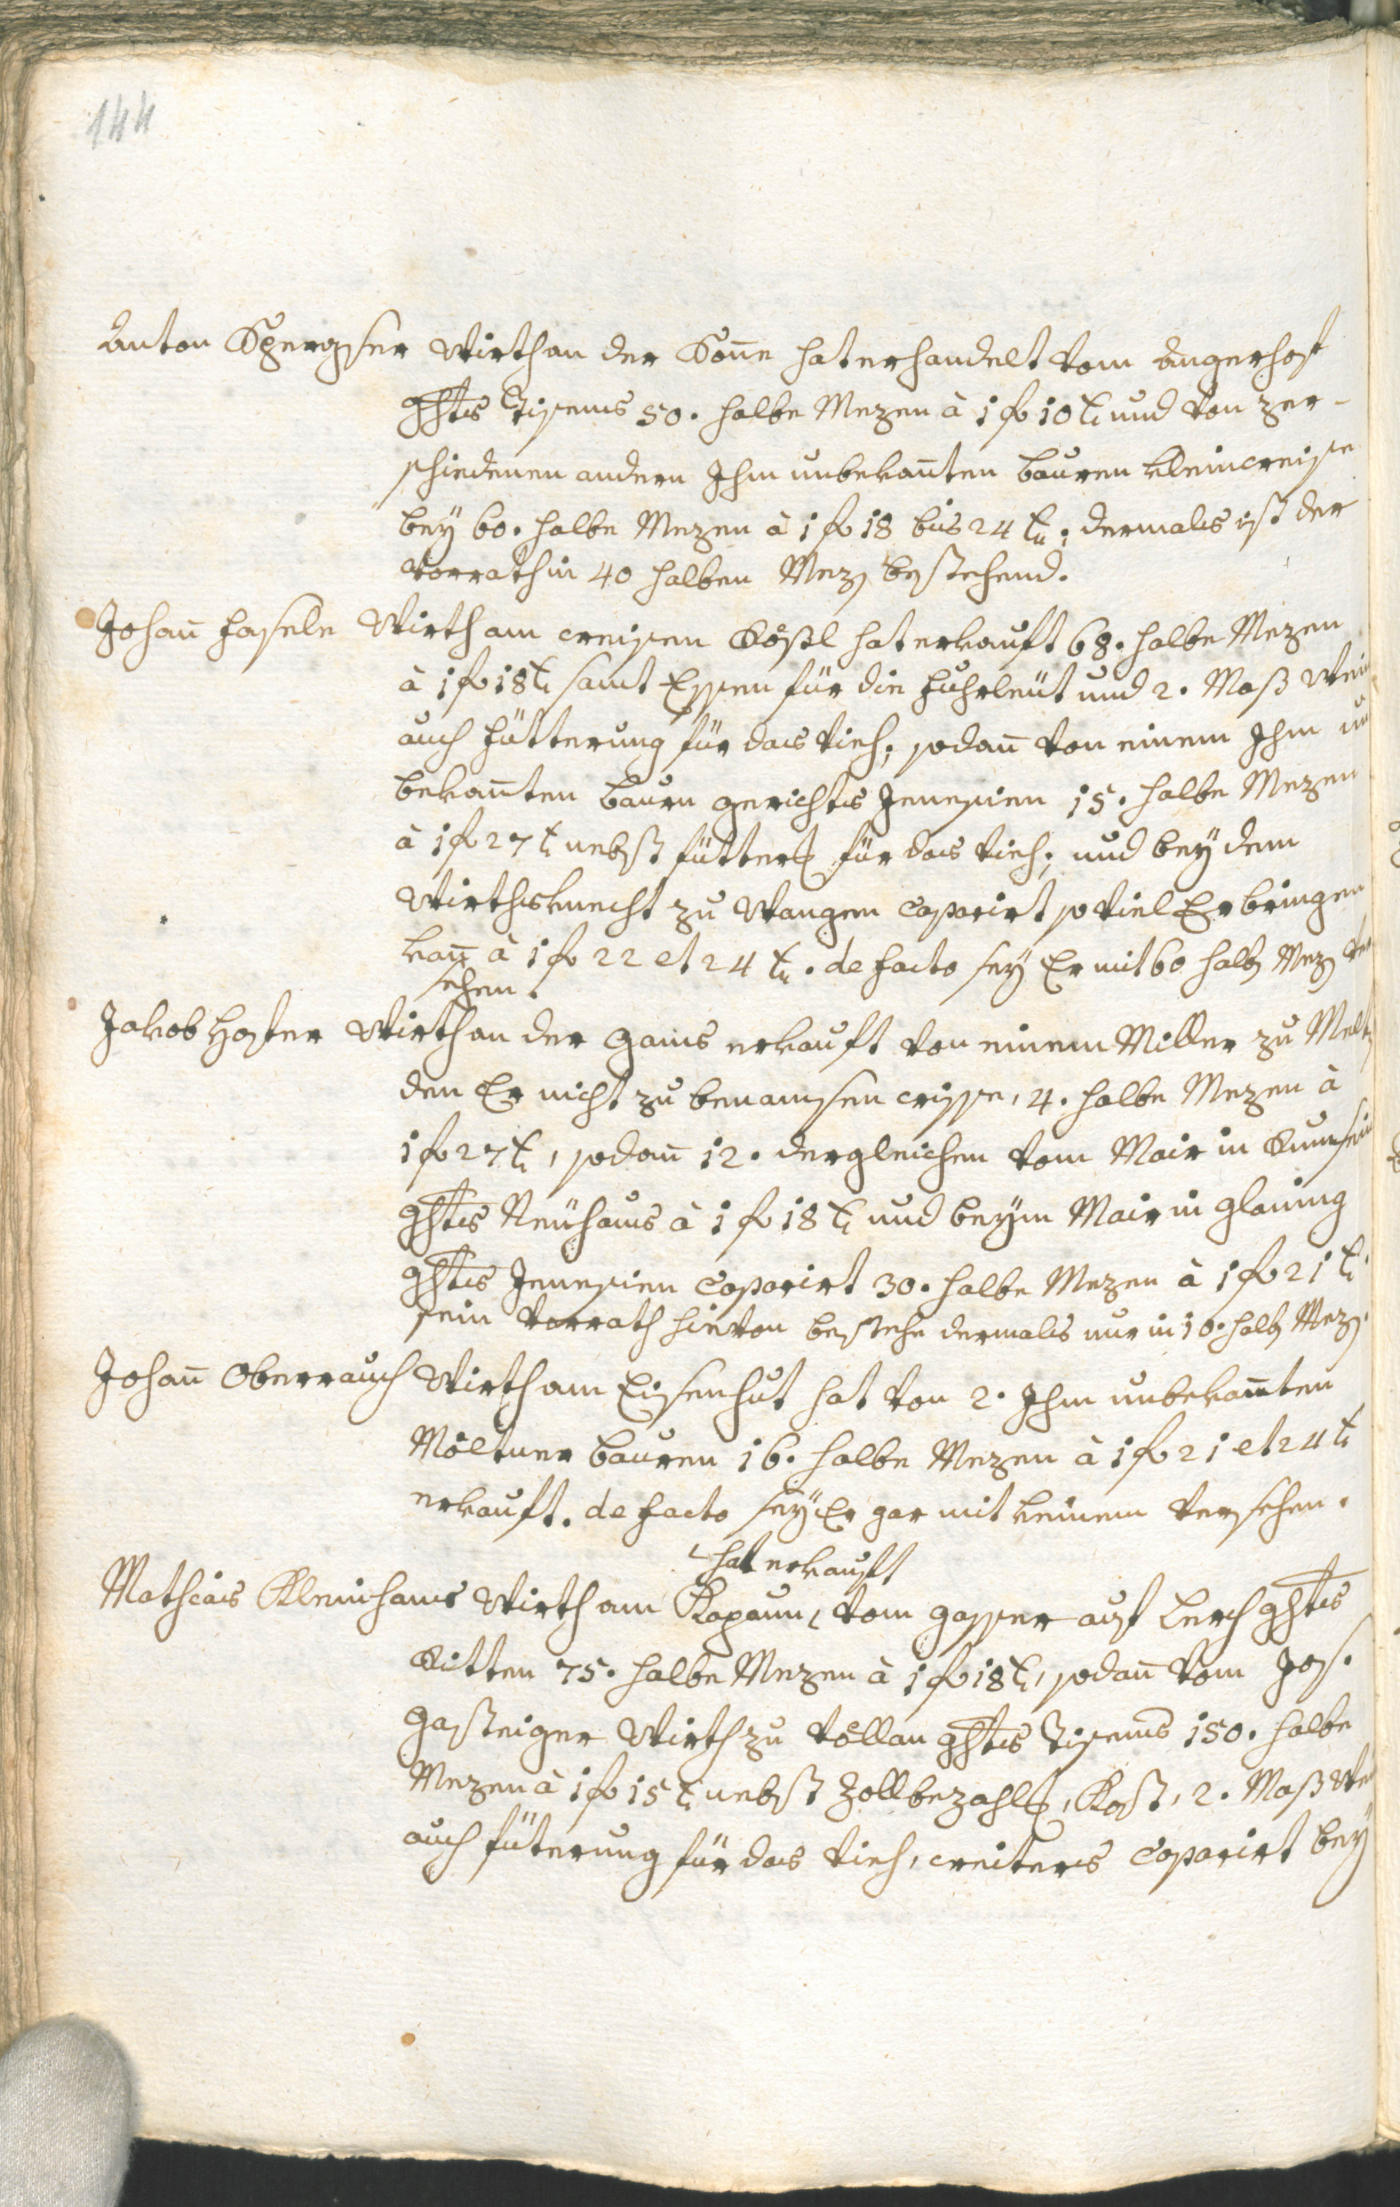 144
Anton Spergser Wirth an der Soñe hat erhandelt vom Angerhof
ghts Tisens 50. halbe Mezen à 1 f 10 x und von ver-
schiedenen andern Ihm unbekañten Bauren kleinweise
bey 60. halbe Mezen à 1 f 18 bis 24 x; dermals ist der
Vorrath in 40 halben Mez. bestehend.
Johañ Hasele Wirth am weisen Rössl hat erkauft 68. halbe Mezen
à 1 f 18 x samt Essen für die Fuhrleüt und 2. Maß Wein
auch Fütterung für das Vieh; sodañ von einem Ihm un
bekañten Baurn gerichts Jenesien 15. halbe Mezen
à 1 f 27 x nebst Fütter. für das Vieh; und bey dem
Wirthsknecht zu Wangen caparirt so viel Er bringen
kañ à 1 f 22 et 24 x. de facto sey Er mit 60 halb. Mez. ver
sehen.
Jakob Hofer Wirth an der Gans erkauft von einem Miller zu Melt.
den Er nicht zu benamsen wisse, 4. halbe Mezen à
1 f 27 x, sodañ 12. dergleichen vom Mair in
ghts Neühaus à 1 f 18 x und beym Mair in Glaning
ghts Jenesien caparirt 30. halbe Mezen à 1 f 21 x.
sein Vorrath hievon bestehe dermals nur in 10. halb. Mez.
Johañ Oberrauch Wirth am Eisenhut hat von 2. Ihm unbekañten
Möltner Bauren 16. halbe Mezen à 1 f 21 et 24 x
erkauft. de facto sey Er gar mit keinem versehen.
hat erkauft
Mathias Kleinhans Wirth am Kapaun, vom Gasser auf Lerch ghts
Ritten 75. halbe Mezen à 1 f 18 x, sodañ vom Jos.
Gasteiger Wirth zu Völlan ghts Tisens 150. halbe
Mezen à 1 f 15 x nebst Zollbezahl., Kost, 2. Maß We
auch fütterung für das Vieh, weiters caparirt bey